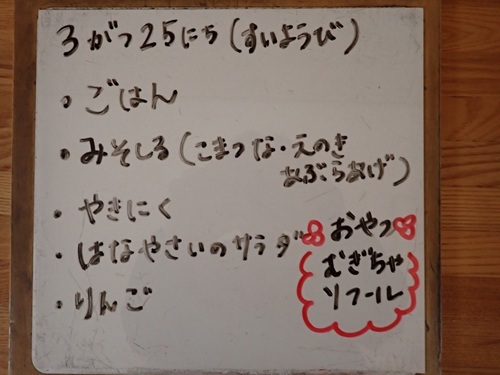 3がつ25にち(すいようび)
・ごはん
・みそしる(こまつな・えのき
あぶらあげ)
・やきにく
・はなやさいのサラダ
・りんご
おやつ
むぎちゃ
ソフール